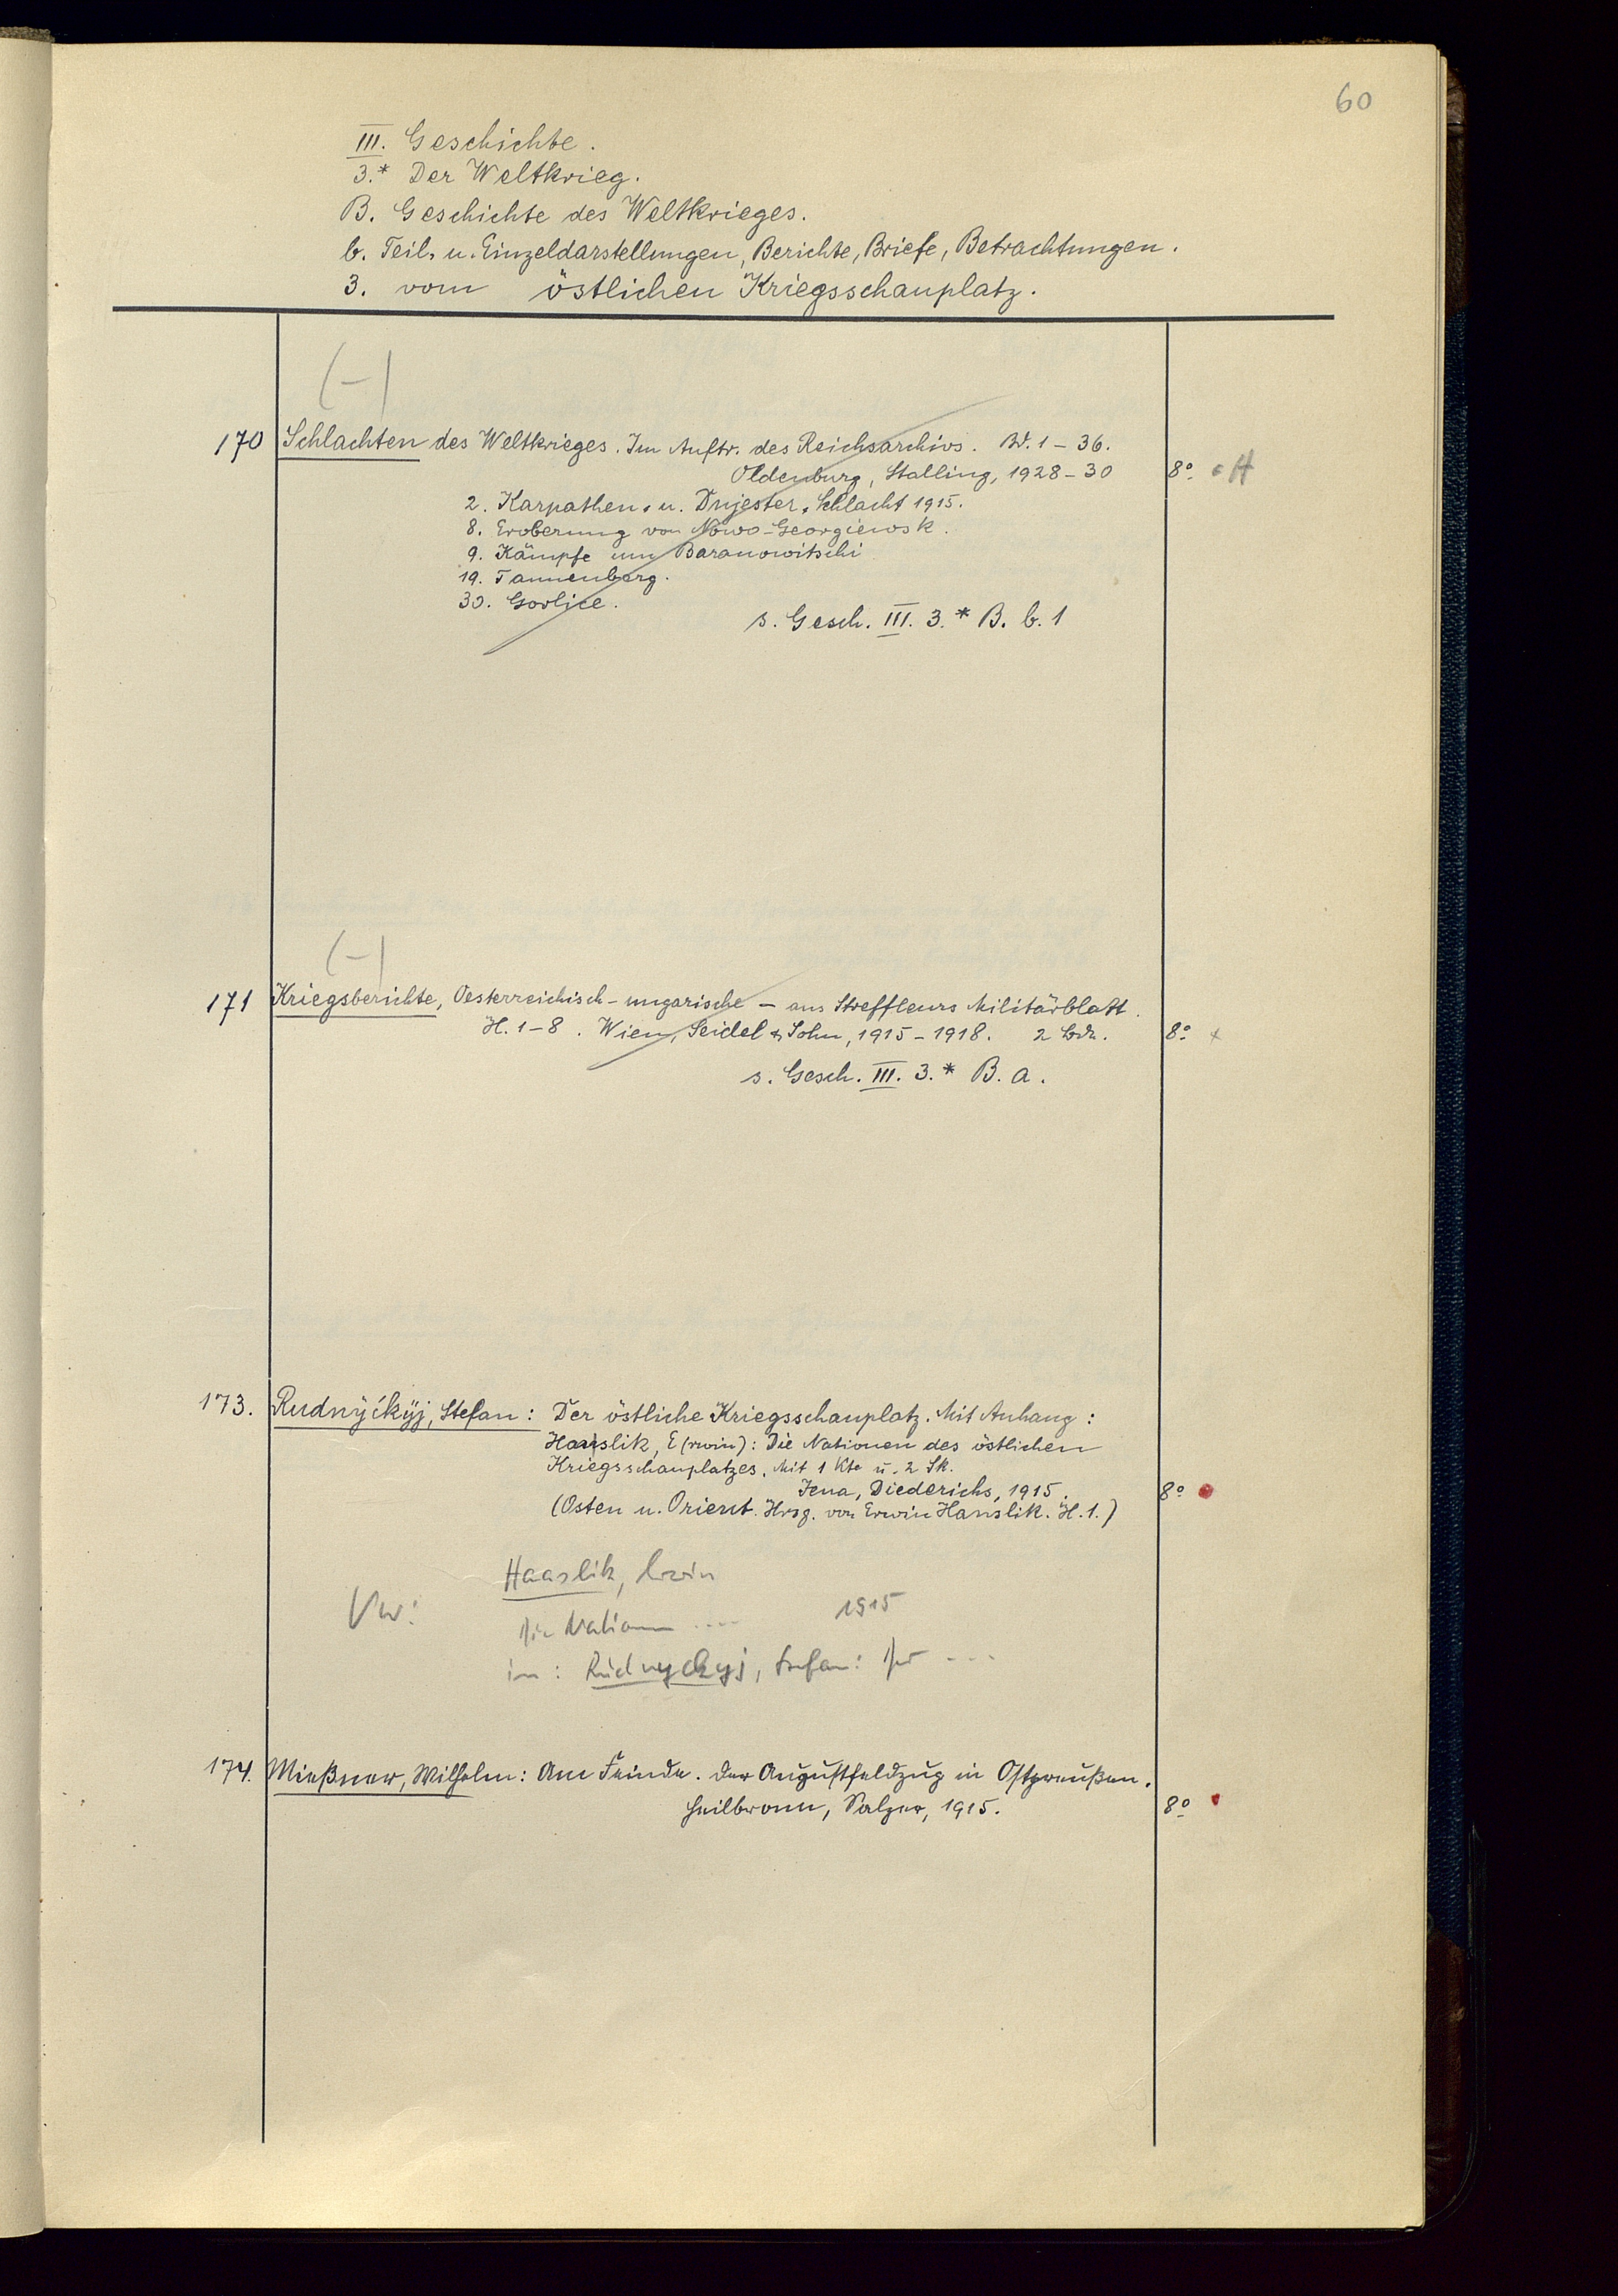 60
III. Geschichte.
3.* Der Weltkrieg.
B. Geschichte des Weltkrieges.
b. Teil- u. Einzeldarstellungen, Berichte, Briefe, Betrachtungen.
3. vom östlichen Kriegsschauplatz.
(-)
170 Schlachten des Weltkrieges. Im Auftr. des Reichsarchivs. Bd. 1 - 36.
Oldenburg, Stalling, 1928 - 30 8°
2. Karpathen- u. Dnjester-Schlacht 1915.
8. Eroberung von Nowo-Georgiewsk.
9. Kämpfe um Baranowitschi
19. Tannenberg.
30. Gorlice.
s. Gesch. III. 3.* B. b. 1
(-)
171 Kriegsberichte, Oesterreichisch-ungarische - aus Streffleurs Militärblatt.
H. 1-8. Wien, Seidel & Sohn, 1915 - 1918. 2 Bde. 8° x
s. Gesch. III. 3.* B. a.
173. Rudnyćkyj, Stefan: Der östliche Kriegsschauplatz. Mit Anhang:
Hanslik, E(rwin): Die Nationen des östlichen
Kriegsschauplatzes. Mit 1 Kte u. 2 Sk.
Jena, Diederichs, 1915. 8°
(Osten u. Orient. Hrsg. von Erwin Hanslik. H. 1.)
Haaslik, Erwin
Vw: Die Nationen .... 1915
in: Rudnyckyj, Stefan: Der ...
174. Mießner, Wilhelm: Am Feinde. Der Augustfeldzug in Ostpreußen.
Heilbronn, Salzer, 1915. 8°